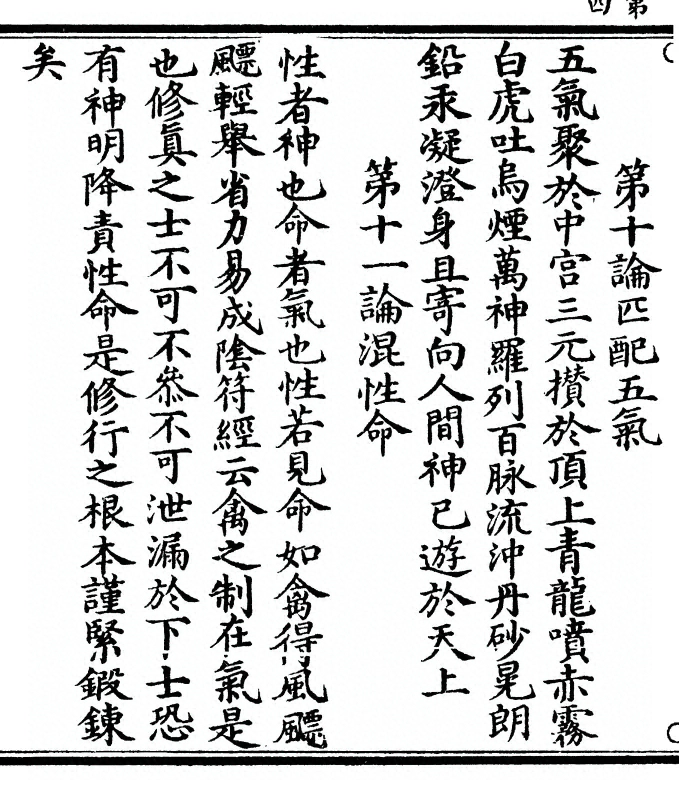 第四
第十論匹配五氣
五氣聚於中宮三元攅於頂上青龍噴赤霧
白虎吐烏煙萬神羅列百脉流沖丹砂晃朗
鉛汞凝澄身且寄向人間神已遊於天上
第十一論混性命
性者神也命者氣也性若見命如禽得風飄
飄輕舉省力易成隂符經云禽之制在氣是
也修眞之士不可不叅不可泄漏於下士恐
有神明降責性命是修行之根本謹緊鍛鍊
矣